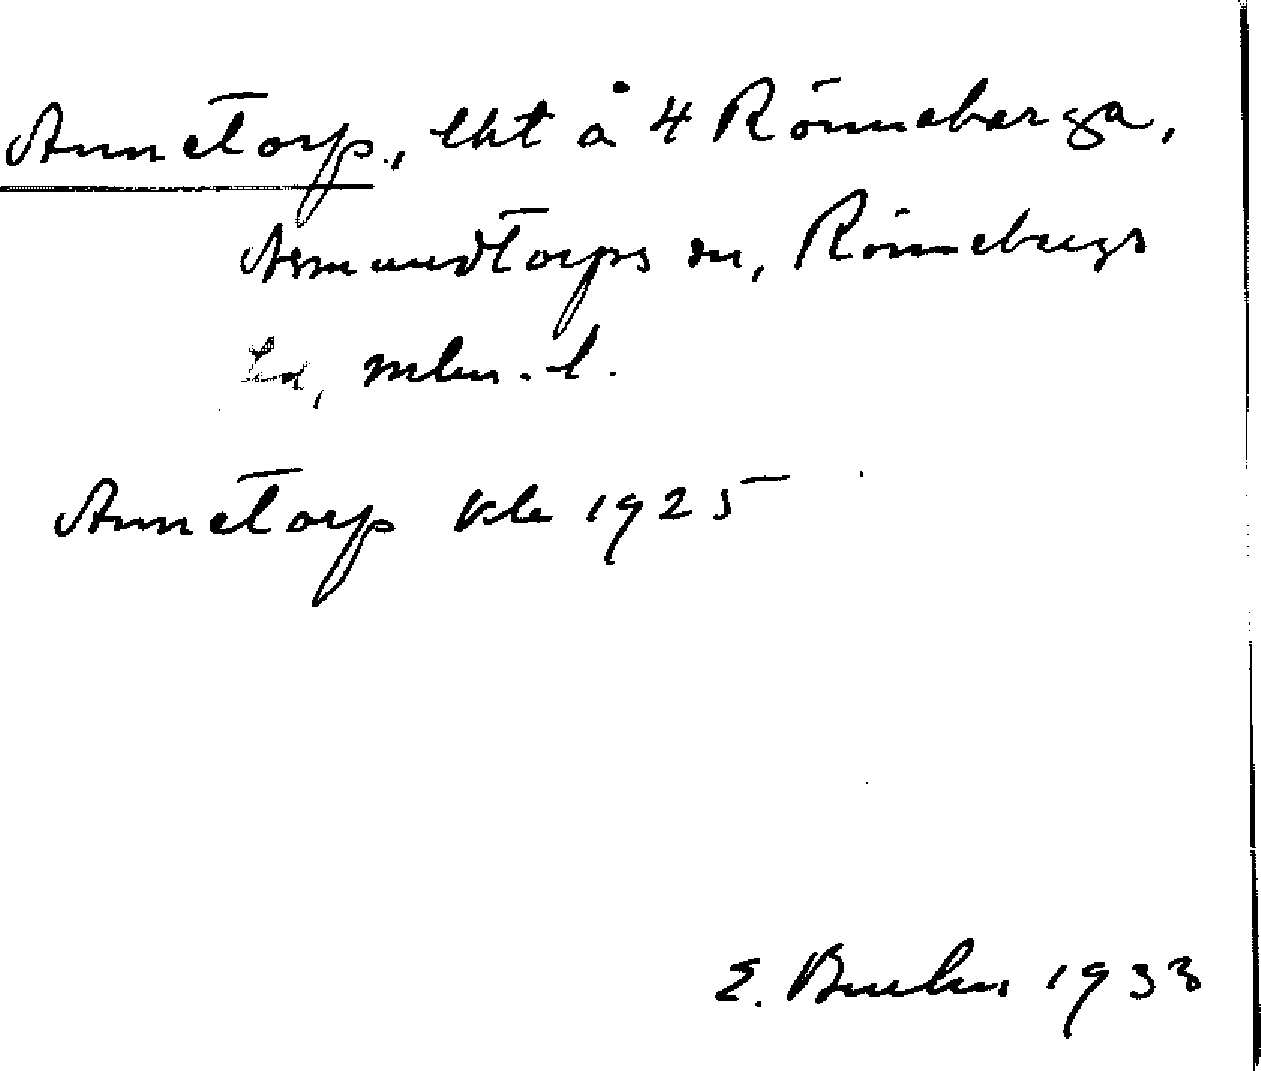 Annetorp, lht å 4 Rönneberga,
Asmundtorps sn, Rönnebergs
hd, mlm. l.
Annetorp kle 1925
E. Buhr 1933